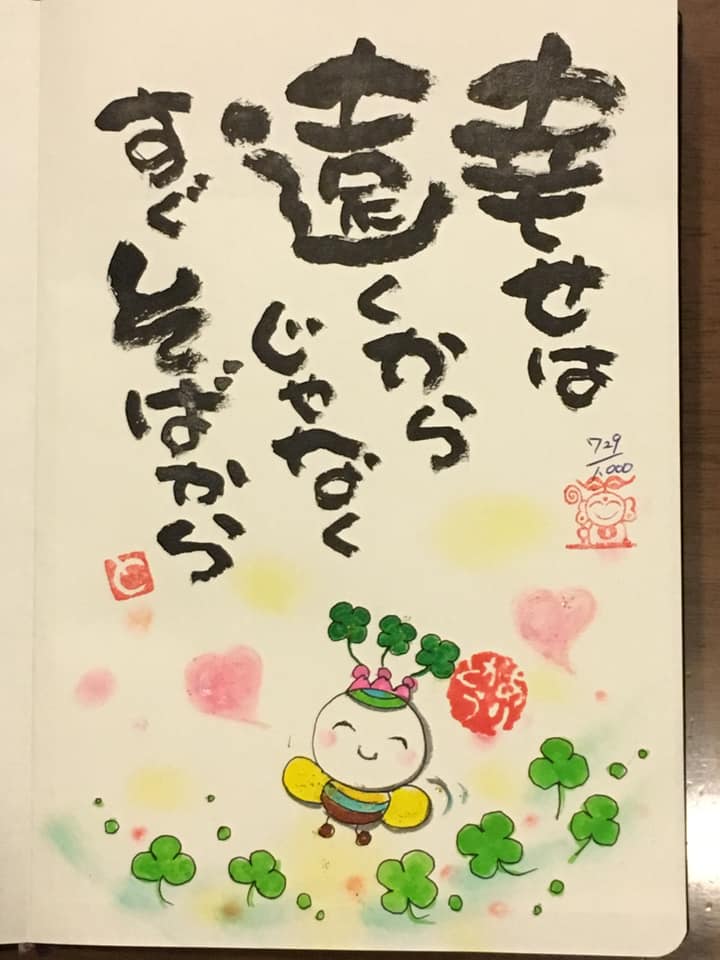 幸せは
遠くから
じゃなく
すぐそばから
729
1,000
と